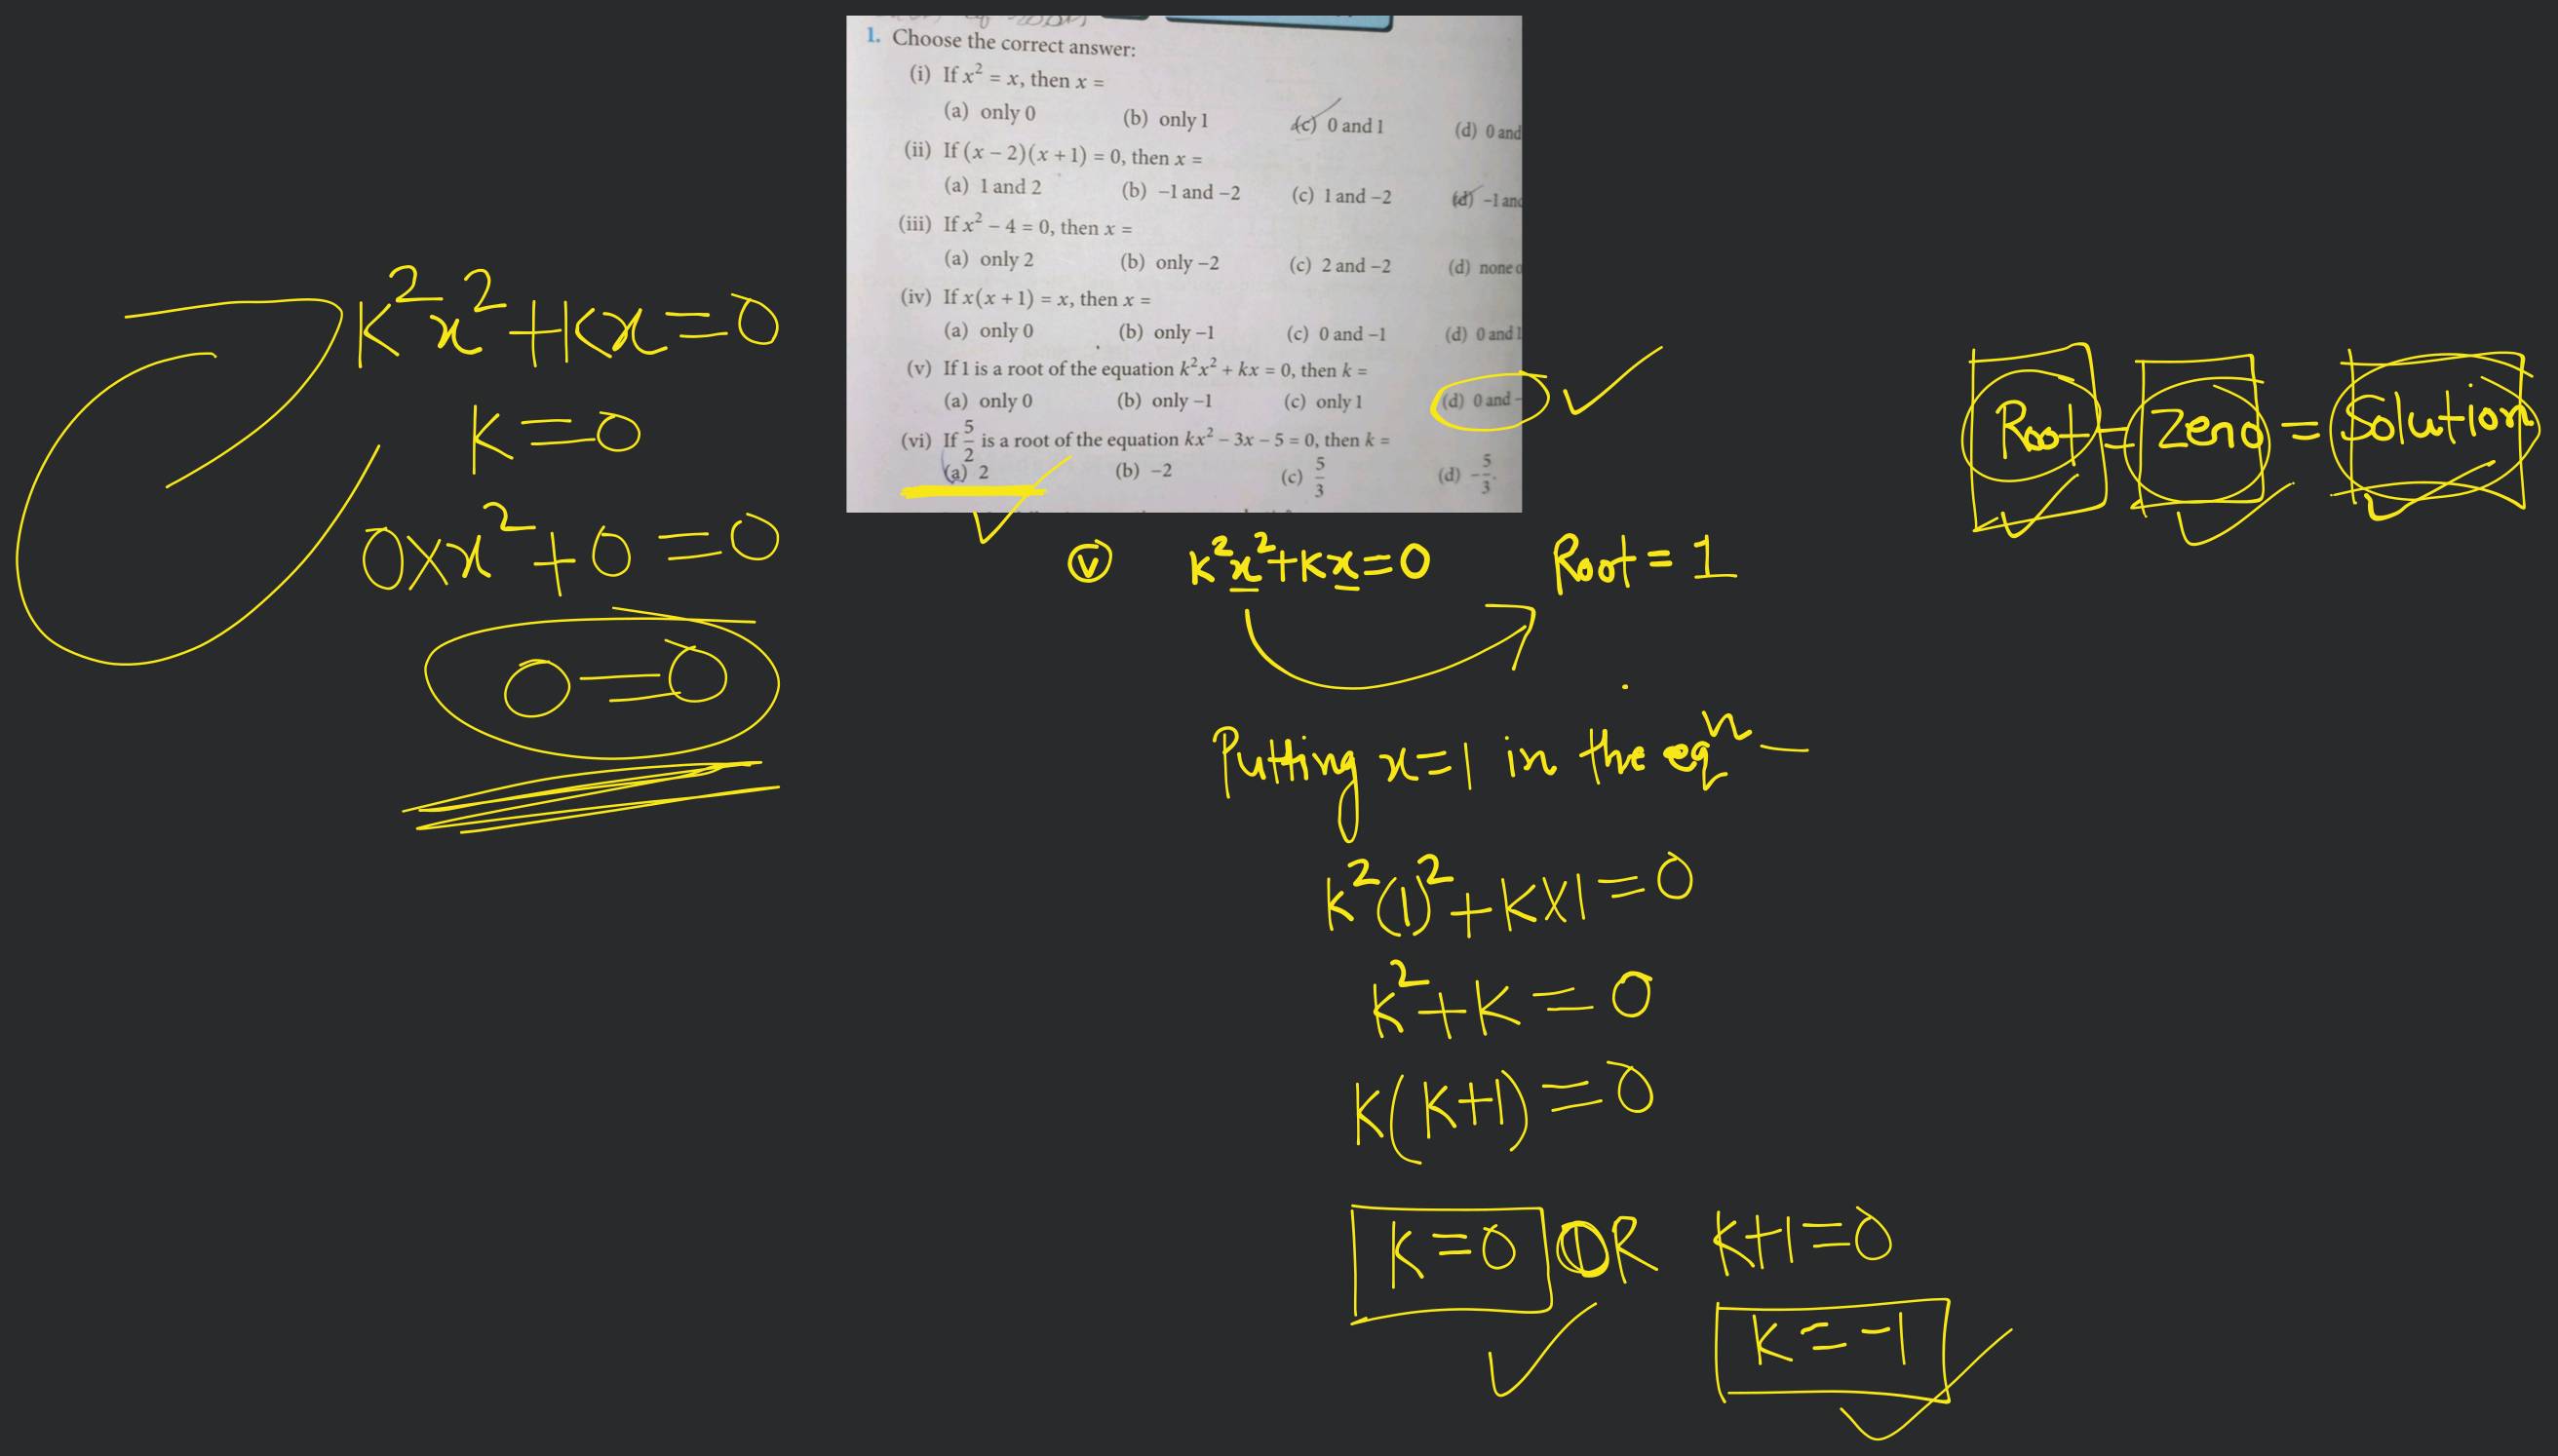 1. Choose the correct answer:
(i) If x² = x, then x =
(a) only 0 (b) only 1 (c) 0 and 1 (d) 0 and
(ii) If (x – 2)(x + 1) = 0, then x =
(a) 1 and 2 (b) –1 and –2 (c) 1 and –2 (d) –1 and
(iii) If x² – 4 = 0, then x =
(a) only 2 (b) only –2 (c) 2 and –2 (d) none
(iv) If x(x + 1) = x, then x =
(a) only 0 (b) only –1 (c) 0 and –1 (d) 0 and 1
(v) If 1 is a root of the equation k²x² + kx = 0, then k =
(a) only 0 (b) only –1 (c) only 1 (d) 0 and –
(vi) If 5/2 is a root of the equation kx² – 3x – 5 = 0, then k =
(a) 2 (b) –2 (c) 5/3 (d) –5/3.
K²x²+Kx=0
K=0
0×x²+0=0
0=0
Root = Zero = Solution
(v) K²x²+Kx=0 Root = 1
Putting x=1 in the eqⁿ —
K²(1)²+K×1=0
K²+K=0
K(K+1)=0
K=0 OR K+1=0
K=-1